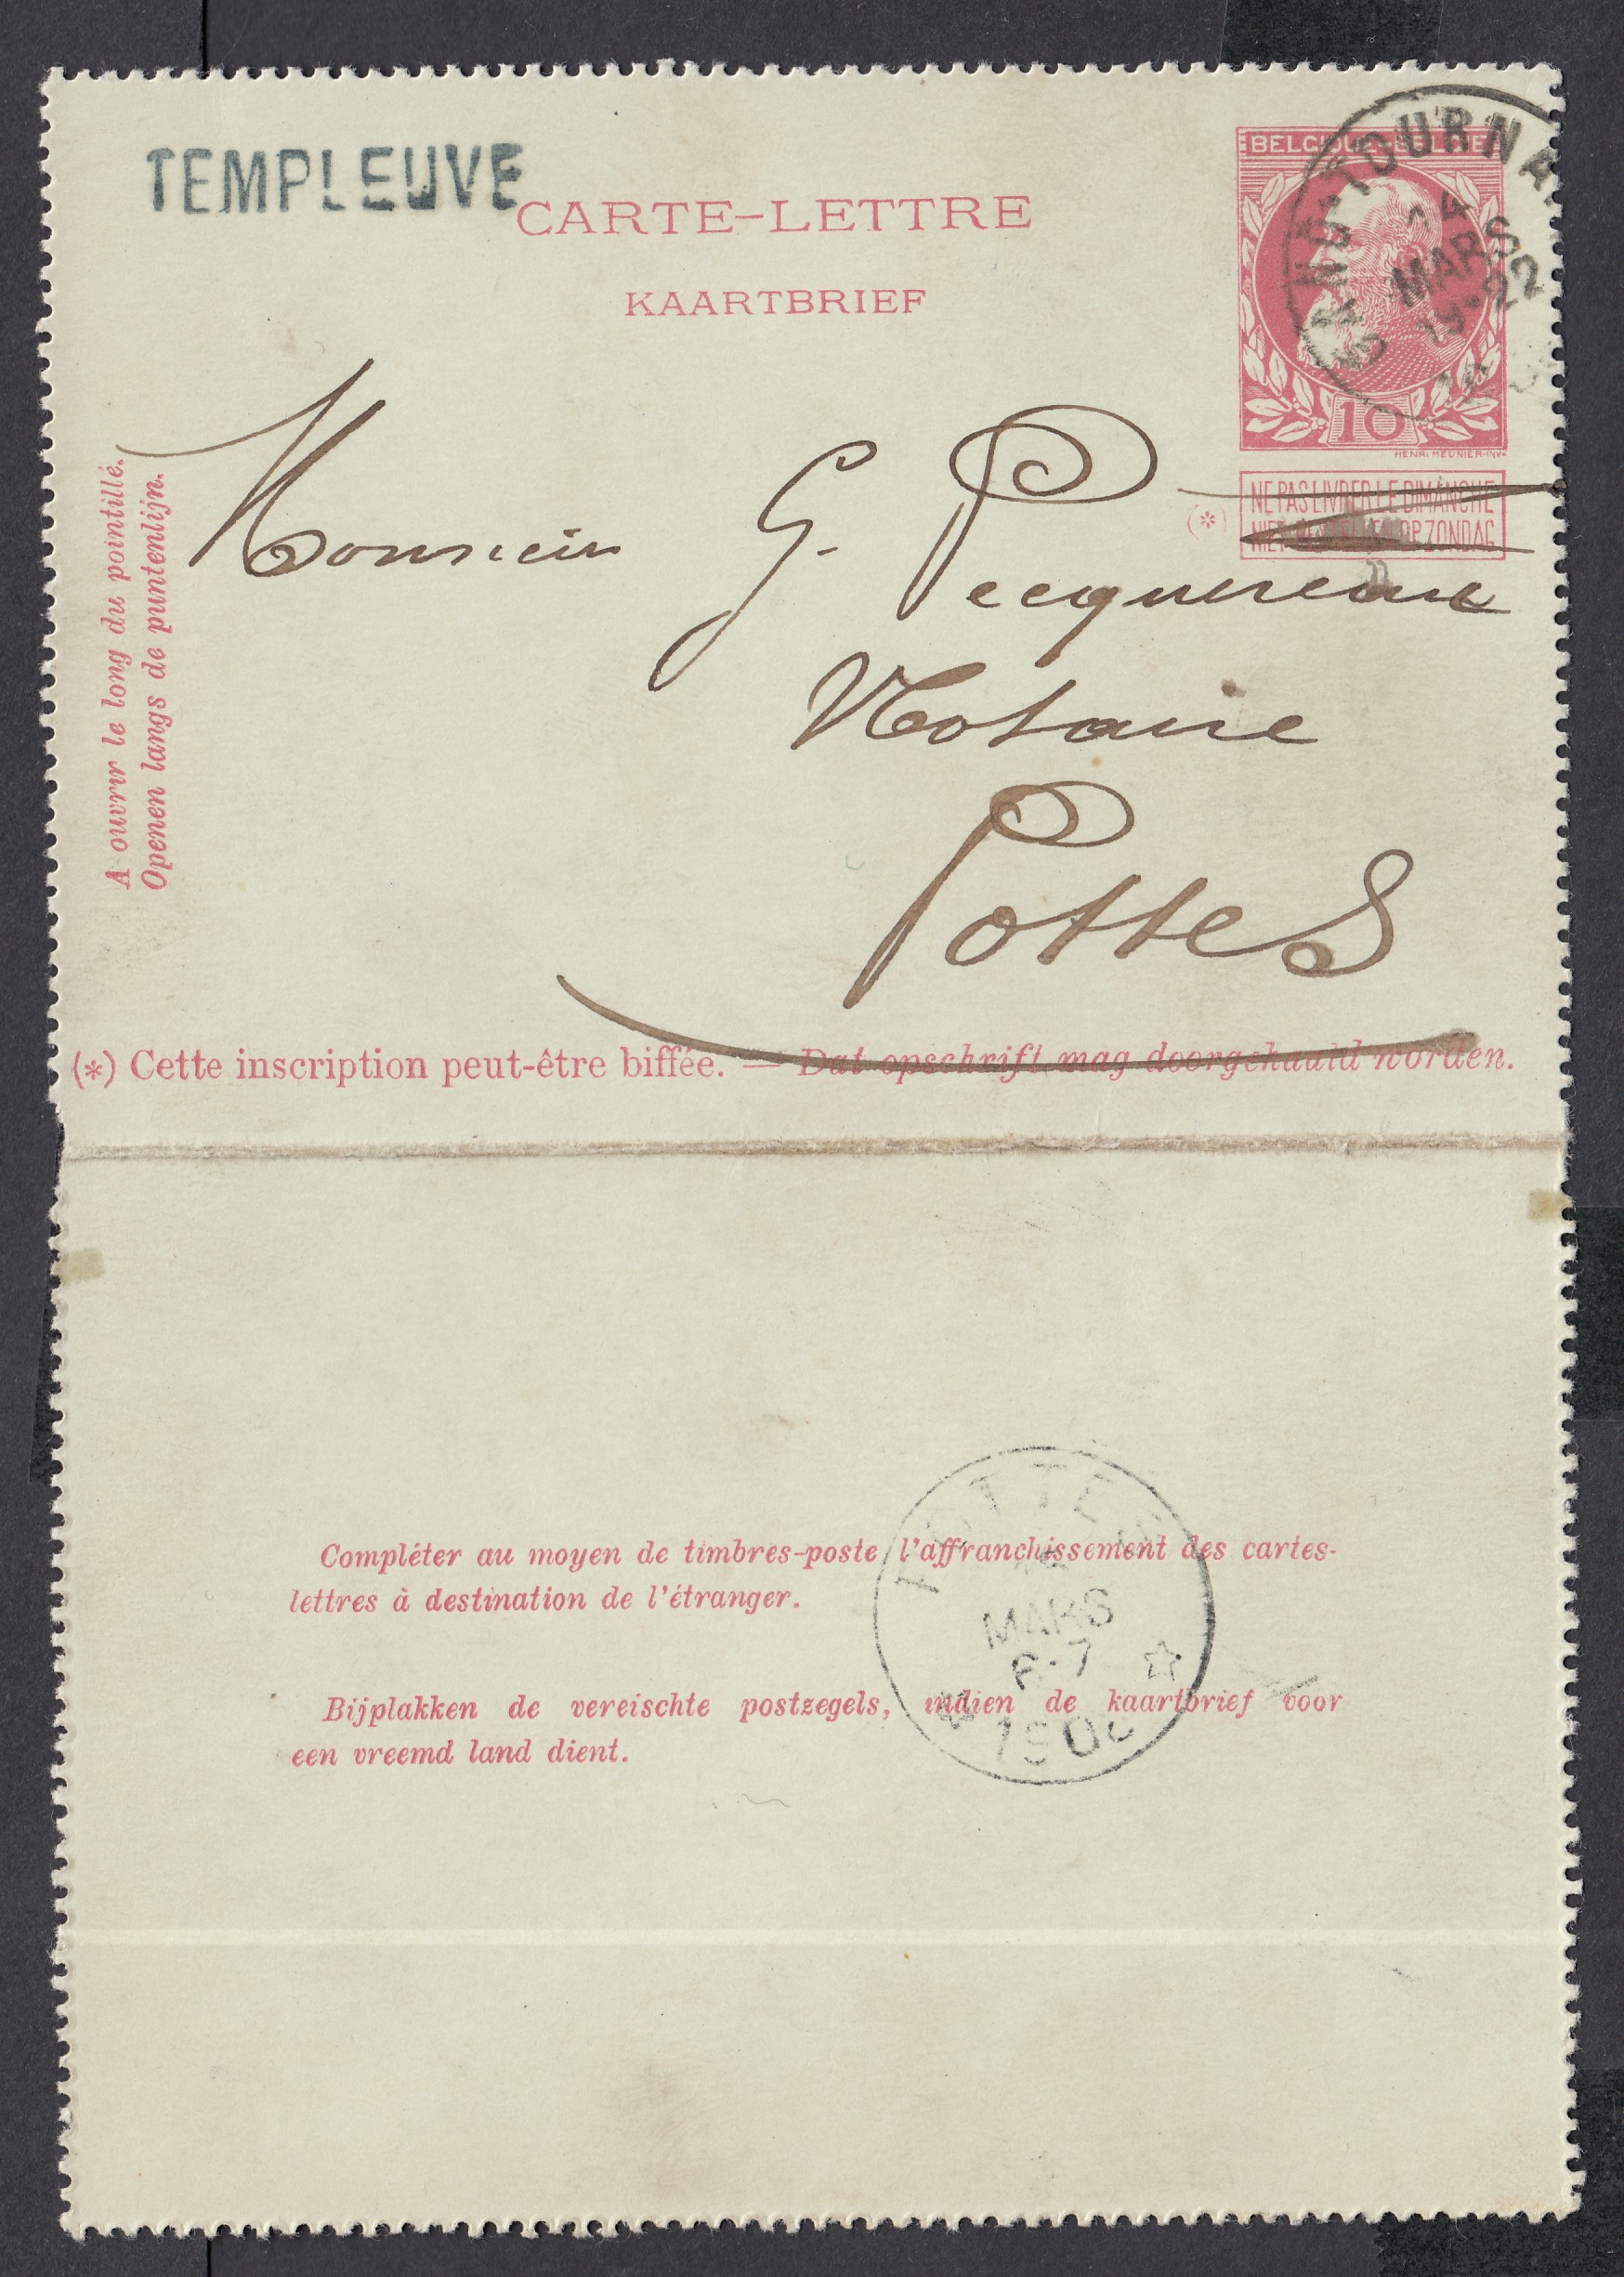 TEMPLEUVE
CARTE-LETTRE
KAARTBRIEF
BELGIQUE-BELGIË
TOURNA
14
MARS
19-22
10
HENRI MEUNIER·INV.
(*)
NE PAS LIVRER LE DIMANCHE
NIET OP ZONDAG
A ouvrir le long du pointillé.
Openen langs de puntenlijn.
Monsieur G. Pecquereau
Notaire
Pottes
(*) Cette inscription peut-être biffée. — Dat opschrift mag doorgehaald worden.
Compléter au moyen de timbres-poste l'affranchissement des cartes-
lettres à destination de l'étranger.
Bijplakken de vereischte postzegels, indien de kaartbrief voor
een vreemd land dient.
POTTES
MARS
6-7